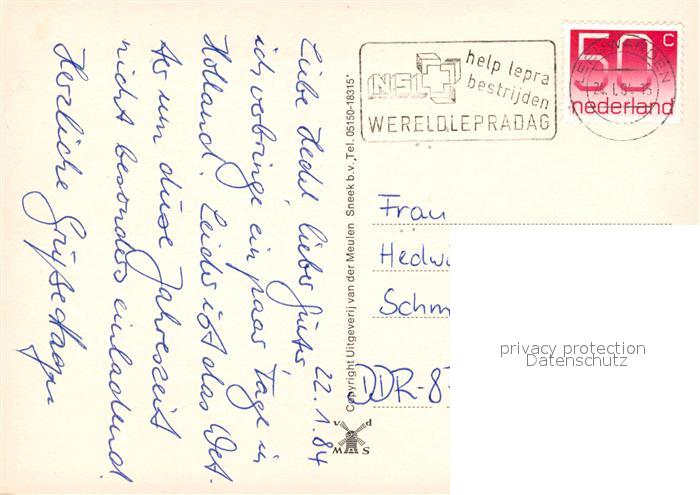 22.1.84
Liebe Hedel, lieber Günter,
ich verbringe ein paar Tage in
Holland. Leider ist das Wet.
As um diese Jahreszeit
nicht besonders einladend.
Herzliche Grüße Hagen
Copyright Uitgeverij van der Meulen Sneek b.v., Tel. 05150-18315*
v d
M S
NSL
help lepra
bestrijden
WERELDLEPRADAG
50 c
nederland
Frau
Hedwi
Schm
DDR-8
privacy protection
Datenschutz